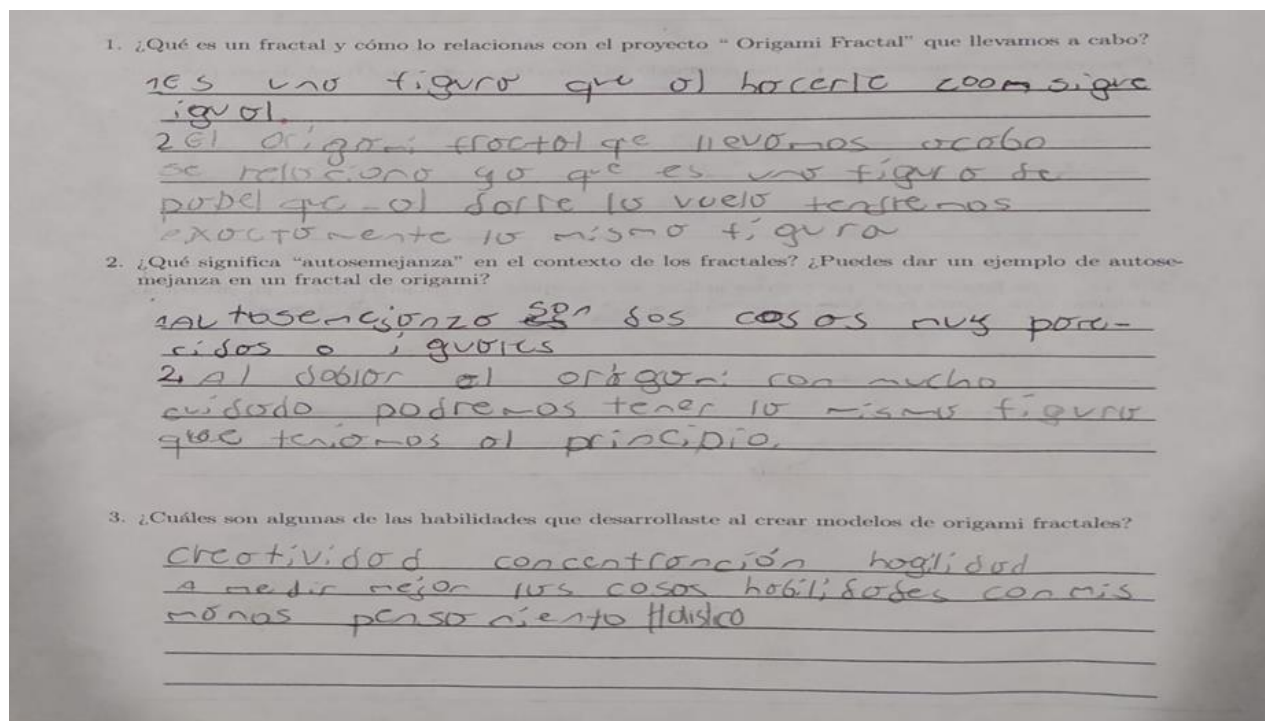 1. ¿Qué es un fractal y cómo lo relacionas con el proyecto “ Origami Fractal” que llevamos a cabo?
1Es una figura que al hacerle zoom sigue
igual.
2El origami fractal qe llevamos acabo
se relaciona ya que es una figura de
papel que al darle la vuelo tendremos
exactamente la misma figura
2. ¿Qué significa “autosemejanza” en el contexto de los fractales? ¿Puedes dar un ejemplo de autose-
mejanza en un fractal de origami?
1Autosemejanza son dos cosas muy pare-
cidas o iguales
2. Al doblar el origami con mucho
cuidado podremos tener la misma figura
que teniamos al principio.
3. ¿Cuáles son algunas de las habilidades que desarrollaste al crear modelos de origami fractales?
creatividad concentranción hagilidad
A medir mejor las cosas habilidades con mis
manos pensamiento